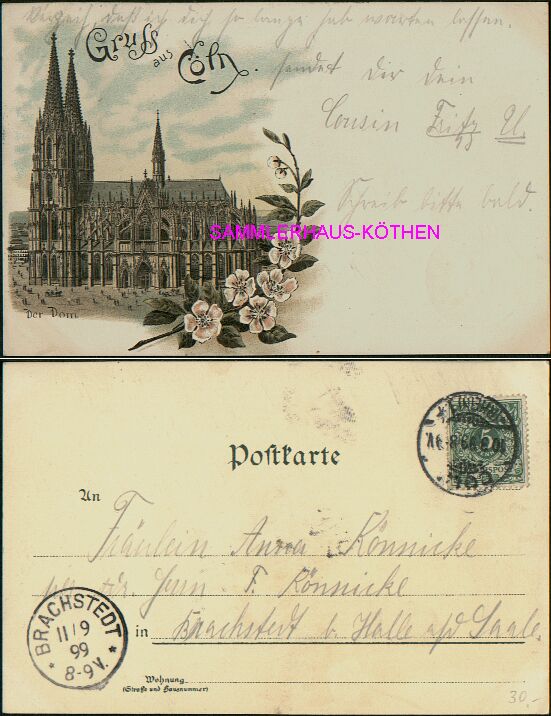 Verzeih, daß ich dich so lange hab warten lassen.
Gruss
aus
Cöln.
sendet Dir dein
Cousin Fritz U.
Schreib bitte bald.
SAMMLERHAUS-KÖTHEN
Der Dom.
Postkarte
5
An
Fräulein Anna Könnicke
Herrn F. Könnicke
in Brachstedt b Halle a/d Saale.
BRACHSTEDT
11/9
99
8-9V.
Wohnung
(Straße und Hausnummer)
30.-